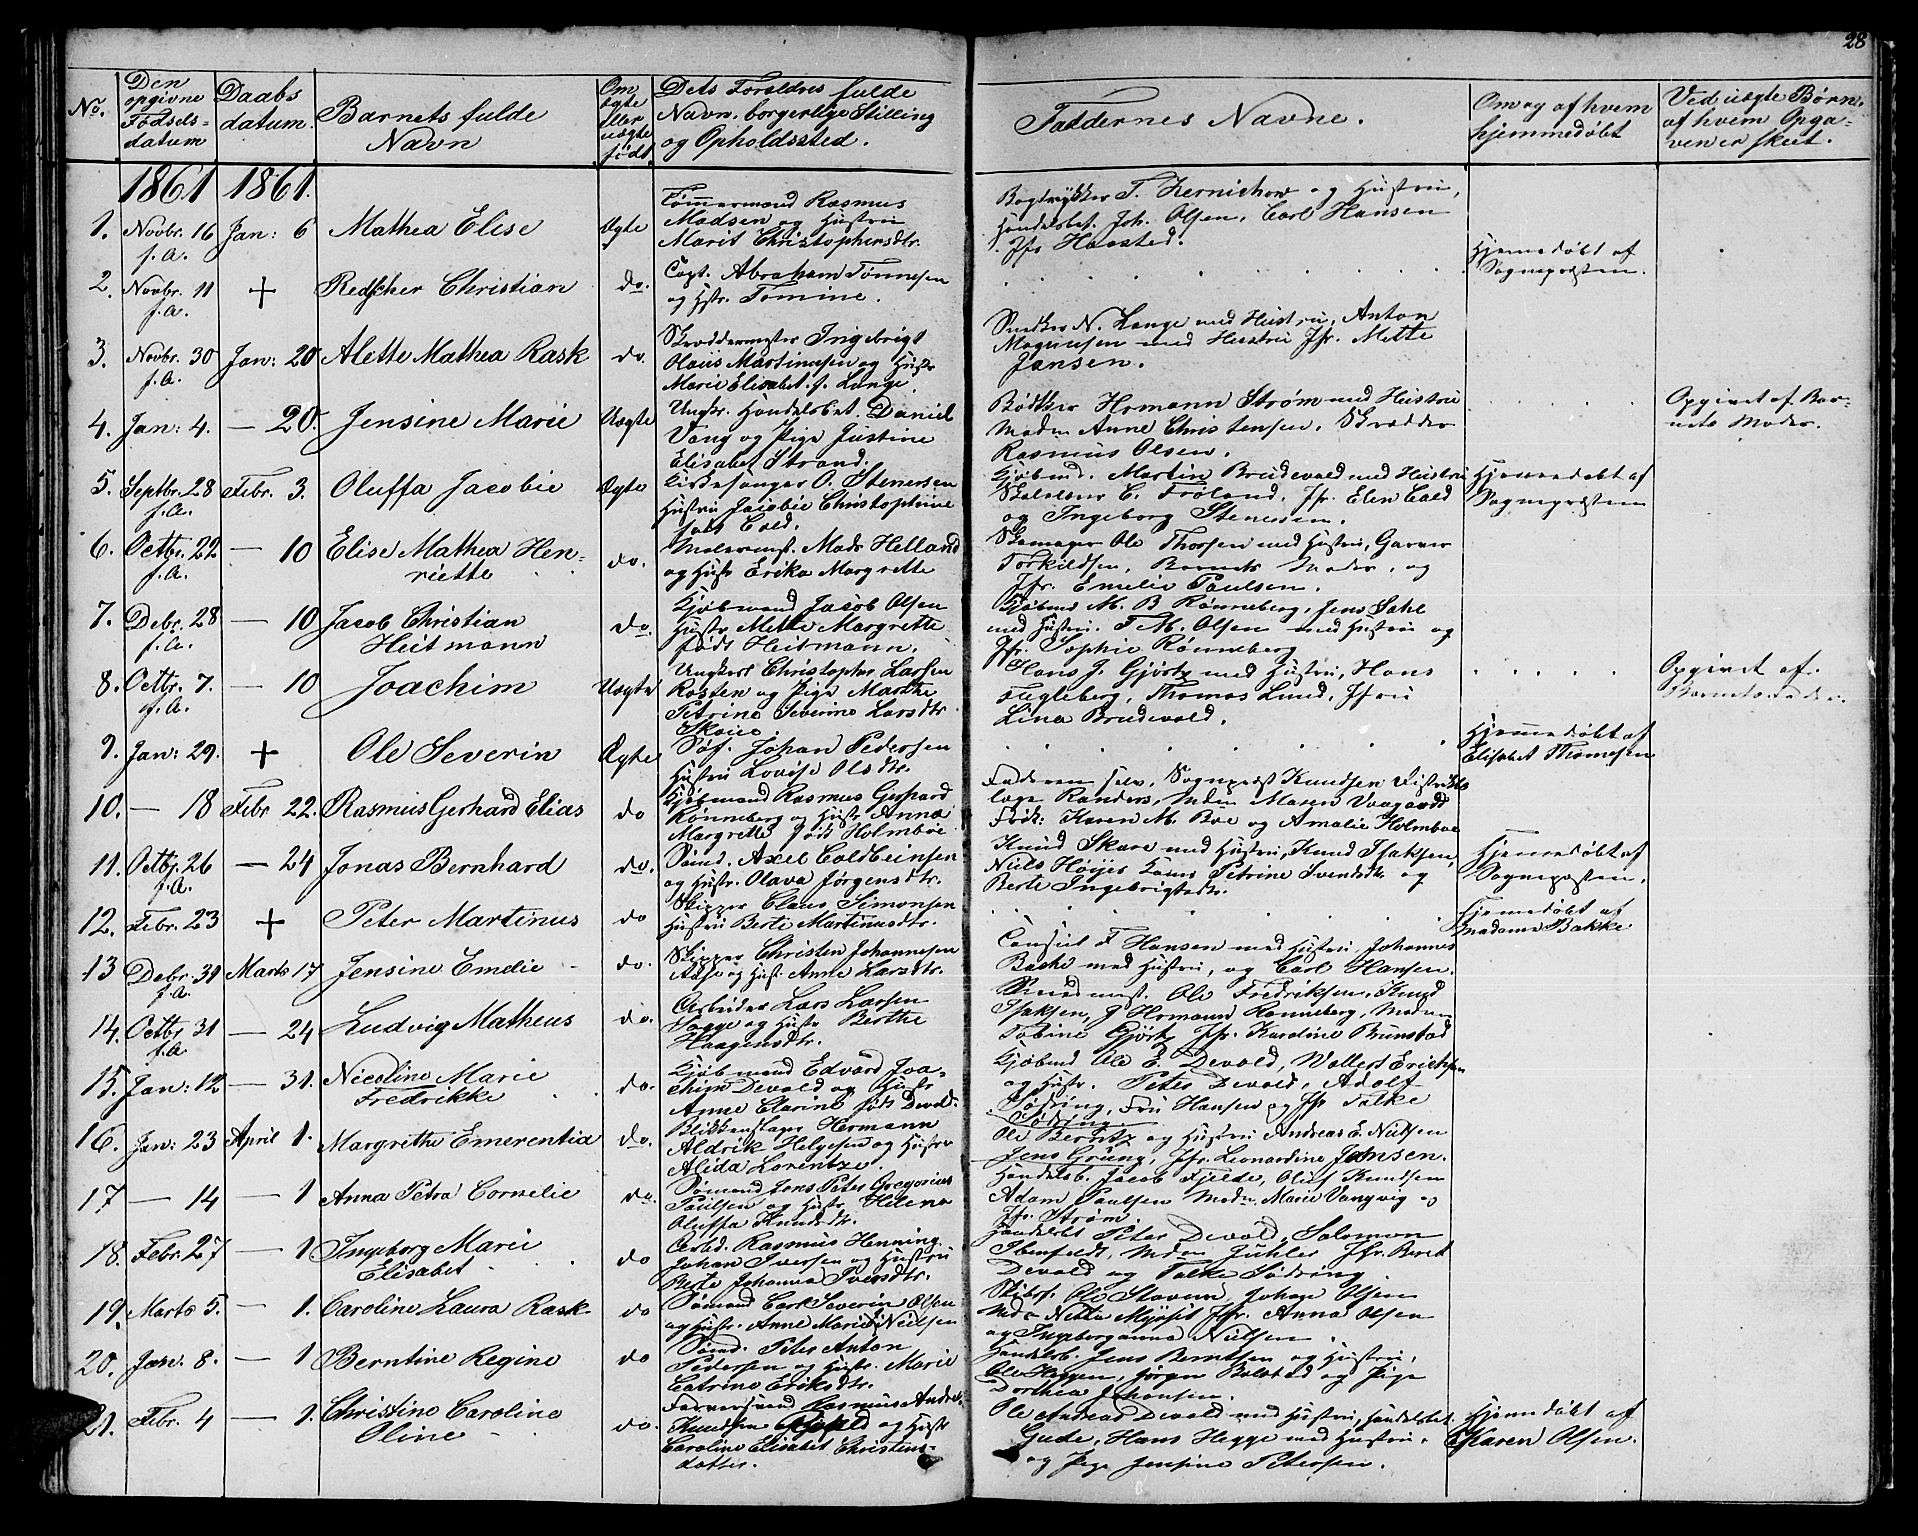 28
No.
Den
opgivne
Fødsels-
datum
Daabs
datum.
Barnets fulde
Navn
Om
ægte
eller
uægte
født
Dets Forældres fulde
Navn, borgerlige Stilling
og Opholdssted.
Faddernes Navne.
Om og af hvem
hjemmedøbt
Ved uægte Børn,
af hvem Opga-
ven er skeet.
1861 1861.
1. Novbr. 16 Jan: 6 Mathea Elise Ægte
f. A.
Tømmermand Rasmus
Madsen og Hustru
Marit Christophersdtr.
Bogtrykker T. Kernichow og Hustru,
Handelsbet. Joh. Olsen, Carl Hansen
Jfr Haasted.
2. Novbr. 11 + Redscher Christian do.
f. A.
Capt. Abraham Tønnesen
og Hstr. Tomine.
Hjemmedøbt af
Sognepræsten.
3. Novbr. 30 Jan: 20 Alette Mathea Rask do.
f. A.
Skræddermester Ingebrigt
Olaus Martinusen og Hustr
Marie Elisabet f. Lange.
Snedker N. Lange med Hustru, Anton
Magnusen med Hustru Jfr. Mette
Jansen.
4. Jan: 4. — 20. Jensine Marie Uægte
Ungkr. Handelsbet. Daniel
Vang og Pige Justine
Elisabet Strand.
Bødker Hermann Strøm med Hustru
Madm Anne Christensen, Skrædder
Rasmus Olsen.
Opgivet af Bar-
nets Moder.
5. Septbr. 28 Febr. 3. Oluffa Jacobie Ægte
f. A.
Kirkesanger O. Stenersen
Hustru Jacobie Christophine
født Cold.
Kjøbmd. Martin Brudevold med Hustru
C. Frøland, Jfr. Elen Cold
og Ingeborg Stenersen.
Hjemmedøbt af
Sognepræsten
6. Octbr. 22 — 10 Elise Mathea Hen-
f. A. riette do.
Malermst. Mads Helland
og Hustr Erika Margrette
Skomager Ole Thorsen med Hustru, Garver
Torkildsen, Barnets Moder, og
Jfr. Emelie Paulsen.
7. Debr. 28 — 10 Jacob Christian
f. A. Heitmann do.
Kjøbmand Jacob Olsen
Hustr Mette Margrette
født Heitmann.
Kjøbmd M. B Rønneberg, Jens Dahl
med Hustru. T. M. Olsen med Hustru og
Jfr. Sophie Rønneberg
8. Octbr. 7. — 10 Joachim Uægte
f. A.
Ungkarl Christopher Larsen
Rosten og Pige Marthe
Petrine Severine Larsdtr
Skaue
Hans J. Gjørtz med Hustru, Hans
Fegleberg, Thomas Lund, Jfru
Lina Brudevold.
Opgivet af
Barnets Fader.
9. Jan: 29. + Ole Severin Ægte
Søf. Johan Pedersen
Hustru Lovise Olsdtr.
Hjemmedøbt af
Elisabet Thomesen
10. — 18 Febr 22. Rasmus Gerhard Elias do
Kjøbmand Rasmus Gerhard
Rønneberg og Hustr Anna
Margrette født Holmboe
Faderen selv, Sognepræst Knudsen Distrikts
læge Randers, Mdm Maren Vaagaard
Frøk: Karen M. Boe og Amalie Holmboe
11. Octbr. 26 — 24 Jonas Bernhard do.
f. A.
Sømd. Axel Coldbeinsen
og Hustr. Olava Jørgensdtr.
Knud Skare med Hustru, Knud Isaksen,
Niels Høyes Petrine Svendsdtr og
Berte Ingebrigtsdtr.
Hjemmedøbt af
Sognepræsten.
12. Febr. 23 + Peter Martinus do
Skipper Claus Simonsen
Hustru Berte Martinusdtr.
Hjemmedøbt af
Madame Bakke
13 Debr. 31 Marts 17 Jensine Emelie do.
f. A.
Skipper Christen Johannesen
Aase og Hust. Anne Larsdtr.
Consul F Hansen med Hustru, Johannes
Baske med Hustru, og Carl Hansen.
14. Octbr 31 — 24 Ludvig Matheus do.
f. A
Arbeider Lars Larsen
og Hustr Berthe
Haagensdtr.
Smedmest. Ole Fredriksen, Knud
Isaksen, J Hermann Rønneberg, Madm
Tobine Gjørtz Jfr. Karoline Brunstad
15. Jan: 12 — 31. Nicoline Marie
Fredrikke do.
Kjøbmand Edvard Joa-
chim Devold og Hustr
Anne Clarine født Devold.
Kjøbmd Ole E. Devold, Vollert Erichsen
og Hustr. Peter Devold, Adolf
Sødring, Fru Hansen og Jfr Falke
Sødring.
16. Jan: 23 April 1. Margrethe Emerentia do.
Blikkenslager Hermann
Aldrik Helgesen og Hustr
Alida Lorentze.
Ole Berntz og Hustru Andreas E. Nielsen
Jens Grung, Jfr. Leonardine Jansen.
17 — 14 — 1 Anna Petra Cornelie do.
Sømand Jens Peter Gregorius
Paulsen og Hustr Helena
Oluffa Knudsdtr.
Handelsb. Jacob Fjelde, Oluf Knudsen
Adam Paulsen Madm. Marie Vangvig og
Jfr. Strøm.
18. Febr. 27 — 1 Ingeborg Marie
Elisabet do
Arbd. Rasmus Henning
Johan Iversen og Hustru
Berte Johanna Iversdtr.
Handelsb Peter Devold, Salomon
Ibenfeldt, Mdm Jühler Jfr. Berit
Devold og Falke Sødring
19. Marts 5. — 1. Caroline Laura Rask do
Sømand Carl Severin Olsen
og Hustr. Anne Marie Nielsen
Skibsf. Ole Stavem, Johan Olsen
Mdm Nikka Myrset Jfr. Anna Olsen
og Ingeborganna Nielsen.
20. Jan: 8. — 1 Berntine Regine do
Sømd. Peter Anton
Pedersen og Hustr. Marie
Catrine Eriksdtr.
Handelsb. Jens Berntsen og Hustru,
Ole Heggen, Jørgen Bolstad og Pige
Dorthea Johansen.
21. Febr. 4 — 1. Christine Caroline
Oline do.
Farversvend Rasmus Andr.
Knudsen og Hustr
Caroline Elisabet Christens-
datter.
Ole Andreas Devold med Hustru, Handelsbet.
Gude, Hans Hegge med Hustru.
og Pige Jensine Petersen.
Hjemmedøbt af
Karen Olsen.